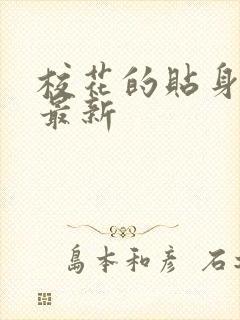 校花的貼身
最新
島本和彦 石